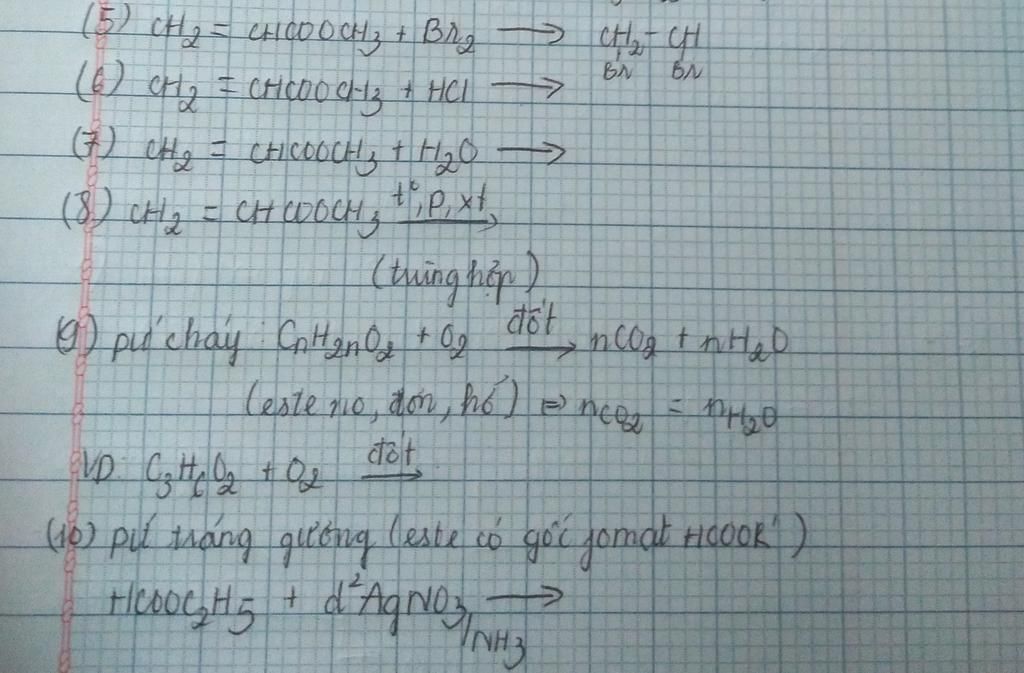 (5) CH2 = CHCOOCH3 + Br2 → CH2 - CH
Br Br
(6) CH2 = CHCOOCH3 + HCl →
(7) CH2 = CHCOOCH3 + H2O →
(8) CH2 = CHCOOCH3 t°, P, xt →
(trùng hợp)
(9) pứ cháy : CnH2nO2 + O2 đốt → nCO2 + nH2O
(este no, đơn, hở) ⇒ nCO2 = nH2O
VD: C3H6O2 + O2 đốt →
(10) pứ tráng gương (este có gốc fomat HCOOR')
HCOOC2H5 + d² AgNO3/NH3 →